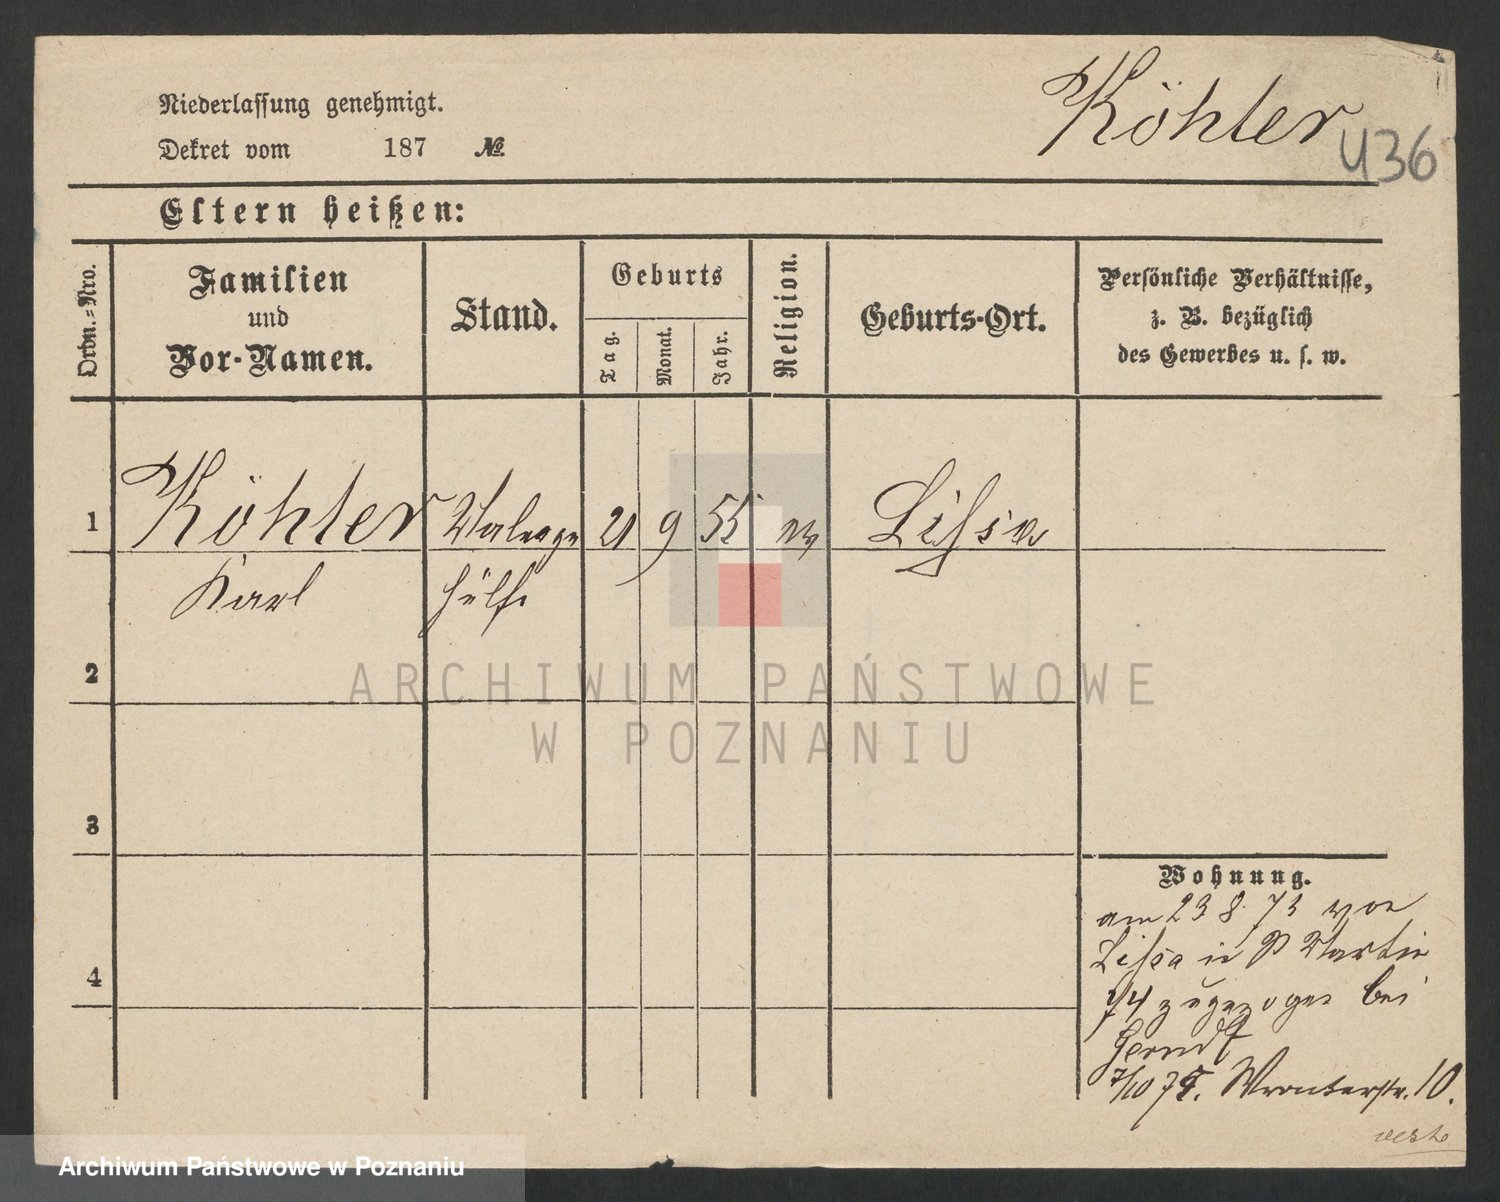 Köhler
436
Niederlassung genehmigt.
Dekret vom 187 №
Eltern heißen:
Ordn.-Nro.
Familien
und
Vor-Namen.
Stand.
Geburts
Tag.
Monat.
Jahr.
Religion.
Geburts-Ort.
Persönliche Verhältnisse,
z. B. bezüglich
des Gewerbes u. s. w.
1
Köhler
21 9 55 ev
Lissa
Karl
2
3
4
Wohnung.
am 23 8 73 von
Lissa in
zugezogen bei
Gerndt
7/10 Wronkerstr. 10.
ARCHIWUM PAŃSTWOWE
W POZNANIU
Archiwum Państwowe w Poznaniu